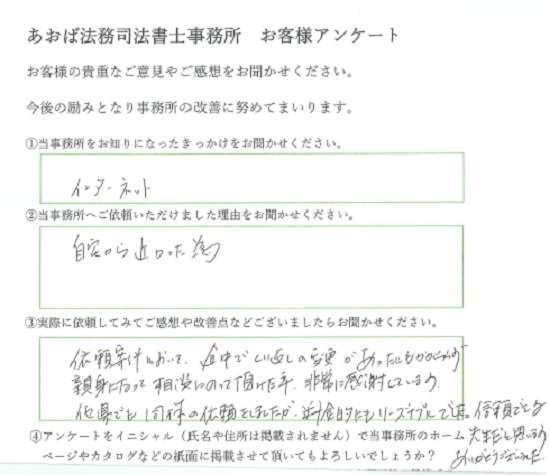 あおば法務司法書士事務所 お客様アンケート
お客様の貴重なご意見やご感想をお聞かせください。
今後の励みとなり事務所の改善に努めてまいります。
①当事務所をお知りになったきっかけをお聞かせください。
インターネット
②当事務所へご依頼いただけました理由をお聞かせください。
自宅から近かった為
③実際に依頼してみてご感想や改善点などございましたらお聞かせください。
依頼案件において、途中で の変更があったにもかかわらず
親身になって相談にのって頂けた事、非常に感謝しています。
他県でも同様の依頼をしましたが、料金的にもリーズナブルで 信頼できる
先生だと思います
ありがとうございました
④アンケートをイニシャル(氏名や住所は掲載されません)で当事務所のホーム
ページやカタログなどの紙面に掲載させて頂いてもよろしいでしょうか?